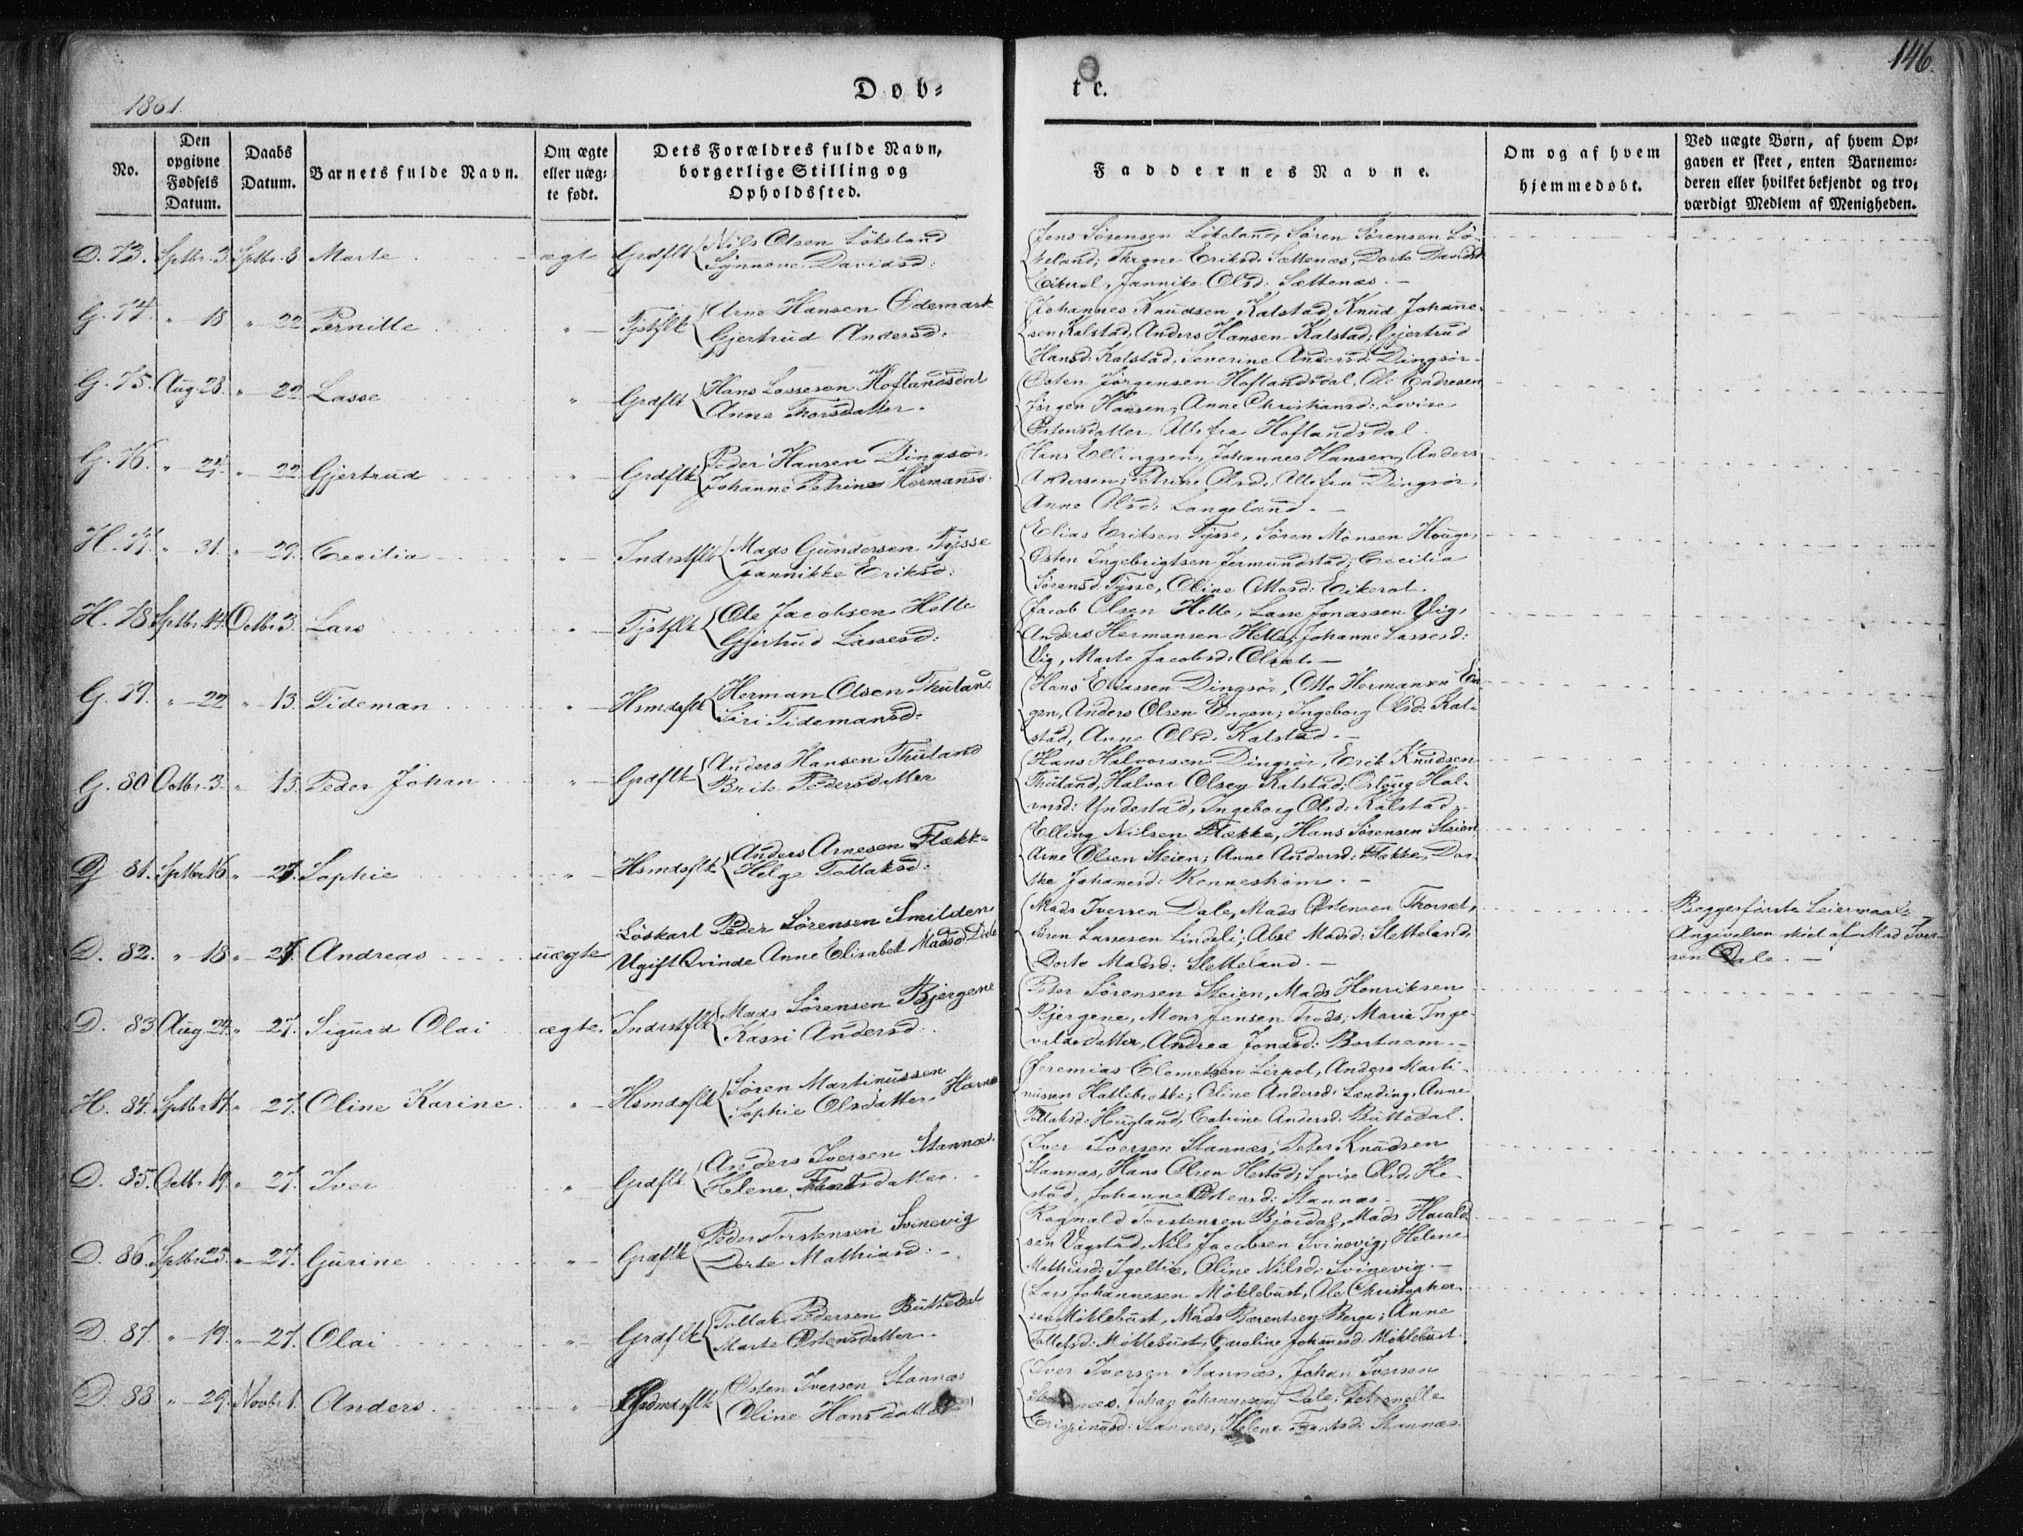 1861.
Døb-
te.
146.
No.
Den
opgivne
Fødsels
Datum.
Daabs
Datum.
Barnets fulde Navn.
Om ægte
eller uæg-
te født.
Dets Forældres fulde Navn,
borgerlige Stilling og
Opholdssted.
Faddernes Navne.
Om og af hvem
hjemmedøbt.
Ved uægte Børn, af hvem Op-
gaven er skeet, enten Barnemo-
deren eller hvilket bekjendt og tro-
værdigt Medlem af Menigheden.
D. 73. Septbr. 3. Septbr. 8 Marte ægte Grdflk Nils Olsen Løkeland
Synneve Davidsd:
Jens Sørensen Løkeland, Søren Sørensen Lø-
keland; Eriksd: Sættenæs, Dorte Davidsd
Eikerol, Jannike Olsd: Sættenæs. -
G. 74. " 18 " 22 Pernille " Tjstflk Arne Hansen Ødemark
Gjertrud Andersd.
Johannes Knudsen Kalstad, Knud Johanne-
sen Kalstad, Anders Hansen Kalstad; Gjertrud
Hansd: Kalstad, Severine Andersd: Dingsør.
G. 75. Aug. 28. " 22 Lasse " Grdflk Hans Lassesen Hoflandsdal
Anne Thorsdatter.
Østen Jørgensen Hoflandsdal, Ole Endresen
Jørgen Hansen, Anne Christiansd: Lovise
Østensdatter, Alle fra Hoflandsdal.
G. 76. " 24. " 22 Gjertrud " Grdflk Peder Hansen Dingsør
Johanne Petrine Hermansd.
Hans Ellingsen, Johannes Hansen, Anders
Andersen; Petrine Olsd: Alle fra Dingsør,
Anne Olsd: Langeland. -
H. 77. " 31. " 29. Cecilia " Indrstflk Mads Gundersen Tysse
Jannikke Eriksd:
Elias Eriksen Tysse, Søren Monsen Houge,
Østen Ingebrigtsen Jermundstad; Cecilia
Sørensd: Tysse, Oline Madsd: Eikerol.
H. 78 Septbr. 14. Octbr. 3. Lars " Tjstflk Ole Jacobsen Helle
Gjertrud Lassesd:
Jacob Olsen Helle, Lasse Jonassen Vig,
Anders Hermansen Helle, Johanne Lassesd:
Vig, Marte Jacobsd: -
G. 79. " 22 " 13. Tideman " Hsmdsflk Herman Olsen Thuland
Siri Tidemansd:
Hans Dingsør, Otto Hermansen En-
gen, Anders Olsen Engen; Ingeborg Olsd: Kal-
stad, Anne Olsd: Kalstad. -
G. 80 Octbr. 3. " 13. Peder Johan " Grdflk Anders Hansen Thuland
Brite Pedersdatter
Hans Halvorsen Dingsør, Erik Knudsen
Thuland, Halvor Olsen Kalstad; Hal-
vorsd: Yndestad, Ingeborg Olsd: Kalstad
81. Septbr. 16. " 27. Sophie " Hsmdsflk Anders Arnesen Flekk-
Helge Tollaksd:
Elling Nilsen Flekke, Hans Sørensen Steien
Arne Olsen Steien; Anne Andersd: Flekke, Dor-
the Johansd: Rennestrøm. -
D. 82. " 18 " 27. Andreas uægte Løskarl Peder Sørensen Smilden
Ugift Qvinde Anne Elisabet Madsd Dale
Mads Iversen Dale, Mads Østensen Thorset,
Søren Lassesen Lindeli; Abel Madsd: Sletteland,
Dorte Madsd: Sletteland. -
Begges første Leiermaal.
Angivelsen skeet af Mads Iver-
sen Dale. -
D. 83 Aug. 24. " 27. Sigurd Olai ægte. Indrstflk Mads Sørensen Bjergene
Kassi Andersd.
Peter Sørensen Steien, Mads Henriksen
Bjergene, Mons Jensen; Marie Inge-
valdsdatter, Andrea Jonasd:
H. 84. Septbr. 14. " 27. Oline Karine " Hsmdsflk Søren Martinussen
Sophie Olsdatter Hernæs
Jeremias Clemetsen, Anders Marti-
nussen Hatlebrekke; Oline Andersd: Lending, Anne
Tollaksd: Heugland, Catrine Andersd: Buttedal.
D. 85. Octbr. 19. " 27. Iver " Grdflk Anders Iversen Stannæs
Helene datter
Iver Iversen Stannæs, Peter Knudsen
Stannæs, Hans Olsen Hestad; Lovise Olsd: He-
stad, Johanne Østensd: Stannæs.
D. 86. Septbr. 22. " 27. Gurine " Grdflk Peder Torstensen Svinevig
Dorte Mathiasd:
Ragnald Torstensen Bjordal, Mads Harald-
sen Vagstad, Nils Jacobsen Svinevig; Helene
Mathiasd: Igeltie, Oline Nilsd: Svinevig. -
D. 87. " 19. " 27. Olai " Grdflk Tollak Pedersen Buttedal
Marte Østensdatter
Lars Johannesen Møklebust, Ole Christopher-
sen Møklebust, Mads Bærentsen Berge; Anne
Tollefsd: Møklebust, Caroline Johannesd: Møklebust.
D. 88. " 29. Novbr. 1. Anders " Grdmdsflk Østen Iversen Stannæs
Oline Hansdatter
Iver Iversen Stannæs, Johan Iversen
Johan Johannesen Dale; Petronelle
Crispinusd: Stannæs, Helene Stannæs